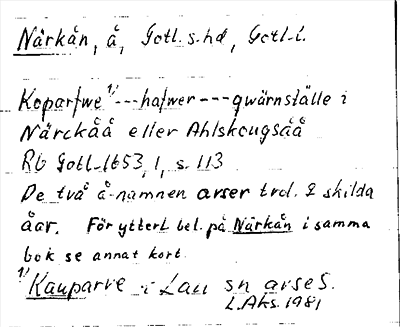 Närkån, å, Gotl. s. hd, Gotl. l.
Koparfwe 1) --- hafwer --- qwärnställe i
Närckåå eller Ahlskougsåå
Rb Gotl. 1653, 1, s. 113
De två å-namnen avser trol. 2 skilda
åar. För ytterl. bel. på Närkån i samma
bok se annat kort.
1) Kauparve i Lau sn avses.
L. Aks. 1981